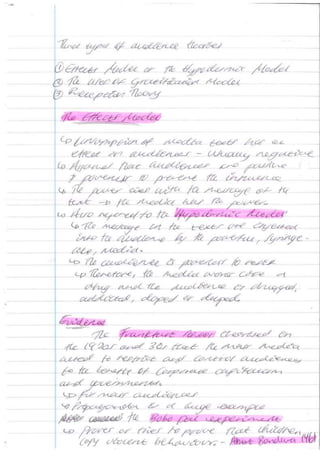 Three types of audience theories
① Effects Model or the Hypodermic Model
② The Uses or Gratification Model
③ Reception Theory
The Effects Model
↳ Consumption of media texts has an
effect on audiences - usually negative
↳ Argued that audiences are passive
& powerless to prevent the influence
↳ The power lies with the message of the
text → the media has the power.
↳ Also referred to the Hypodermic Model
↳ The message in the texts are injected
into the audience by the powerful, syringe-
like, media.
↳ The audience is powerless to resist
↳ Therefore, the media works like a
drug and the audience is drugged,
addicted, doped or duped.
Evidence
The Frankfurt School theorised in
the 1920s and 30s that the mass media
acted to restrict and control audiences
to the benefit of corporate capitalism
and governments
↳ for mass audiences
↳ Propaganda is a huge example
the Bobo Doll experiment
↳ Proves or tries to prove that children
copy violent behaviours - Albert Bandura 1961